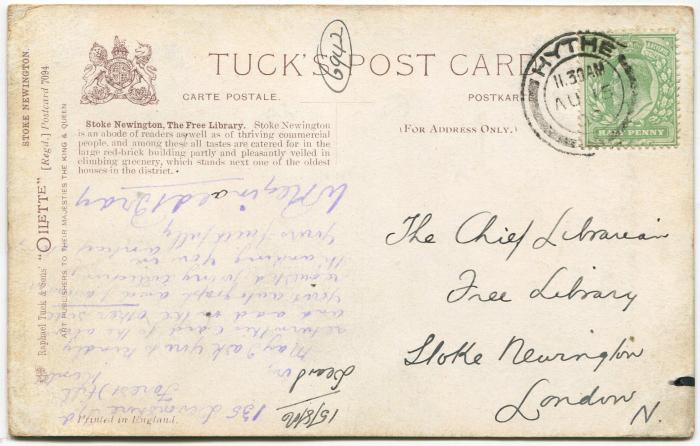 TUCK'S POST CARD
CARTE POSTALE.
POSTKAR
(FOR ADDRESS ONLY.)
Stoke Newington, The Free Library. Stoke Newington
is an abode of readers as well as of thriving commercial
people, and among these all tastes are catered for in the
large red-brick building partly and pleasantly veiled in
climbing greenery, which stands next one of the oldest
houses in the district.
6942
HYTHE
11.30AM
AU
HALFPENNY
STOKE NEWINGTON.
Raphael Tuck & Sons' "OILETTE" [Regd.] Postcard 7094
ART PUBLISHERS TO THEIR MAJESTIES THE KING & QUEEN
The Chief Librarian
Free Library
Stoke Newington
London N.
135 Devonshire Rd
Forest Hill
Kent
15/8/06
Dear Sir,
May I ask you to kindly
return this card to the above
and add on the other side
your autograph and
required, for my collection
thanking you in
Yours faithfully
W Reginald Bray
Printed in England.